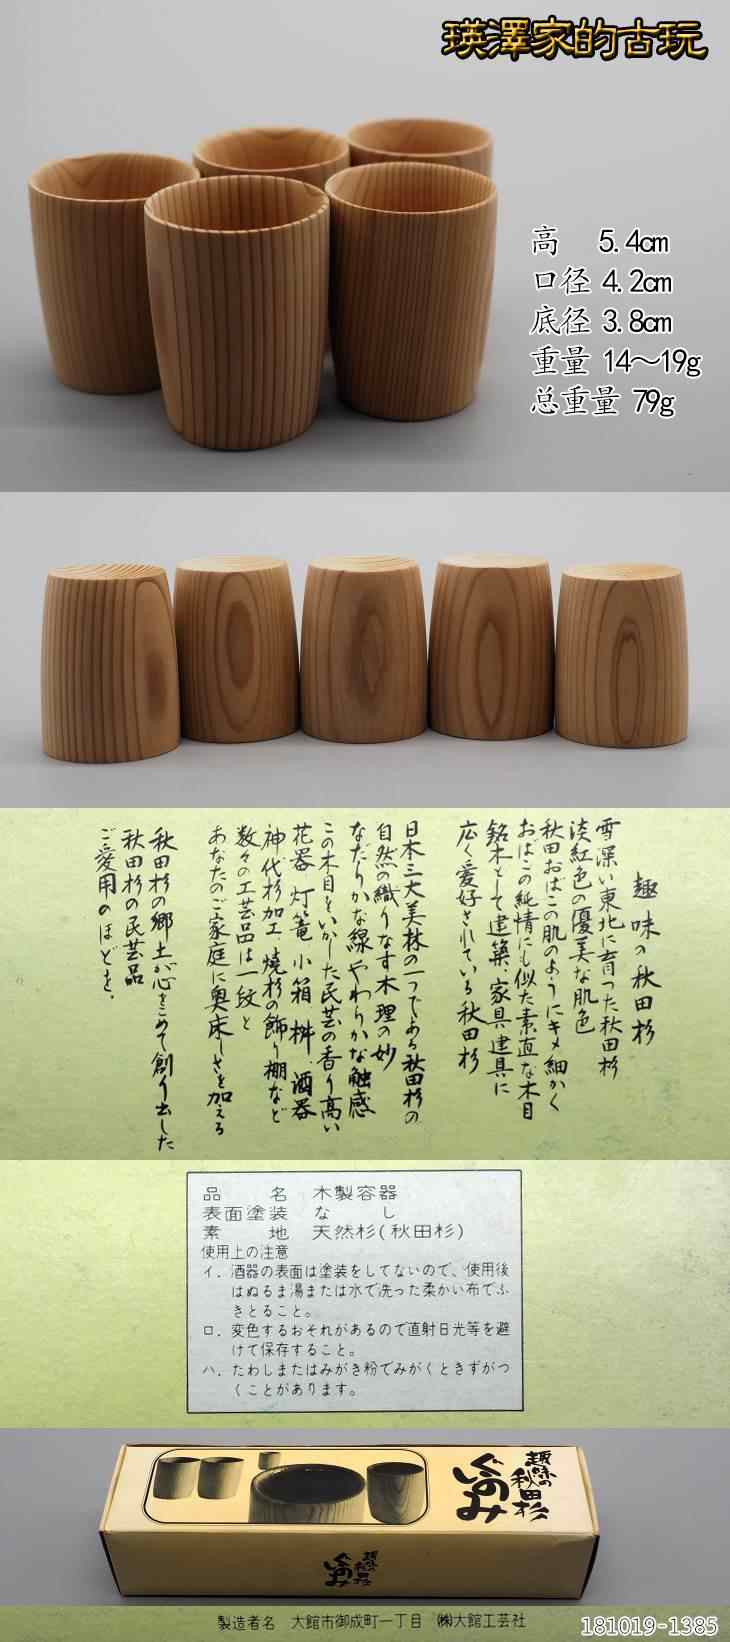 瑛澤家的古玩
高 5.4cm
口径 4.2cm
底径 3.8cm
重量 14～19g
总重量 79g
趣味の秋田杉
雪深い東北に育った秋田杉
淡紅色の優美な肌色
秋田おばこの肌のようにキメ細かく
おばこの純情にも似た素直な木目
銘木として建築、家具建具に
広く愛好されている秋田杉
日本三大美林の一つである秋田杉の
自然の織りなす木理の妙
なだらかな線 やわらかな触感
この木目をいかした民芸の香り高い
花器 灯篭 小箱 桝 酒器
神代杉加工 焼杉の飾り棚など
数々の工芸品は一段と
あなたのご家庭に奥床しさを加える
秋田杉の郷土が心をこめて創り出した
秋田杉の民芸品
ご愛用のほどを。
品名 木製容器
表面塗装 なし
素地 天然杉(秋田杉)
使用上の注意
イ．酒器の表面は塗装をしてないので、使用後
はぬるま湯または水で洗った柔かい布でふ
きとること。
ロ．変色するおそれがあるので直射日光等を避
けて保存すること。
ハ．たわしまたはみがき粉でみがくときずがつ
くことがあります。
趣味の
秋田杉
ぐのみ
趣味の
秋田杉
ぐのみ
製造者名 大館市御成町一丁目 ㈱大館工芸社
181019-1385